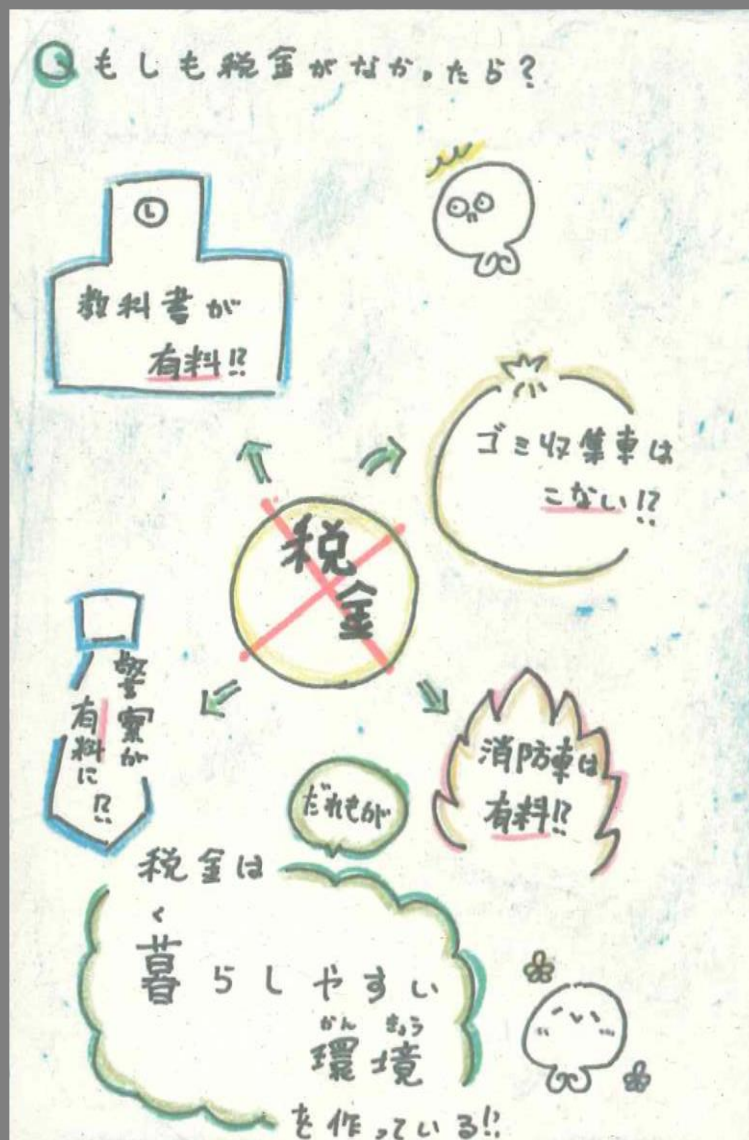 Q もしも税金がなかったら?
教科書が
有料!?
ゴミ収集車は
こない!?
税
金
警察が
有料に!?
消防車は
有料!?
だれもが
税金は
く
暮らしやすい
かんきょう
環境
を作っている!?